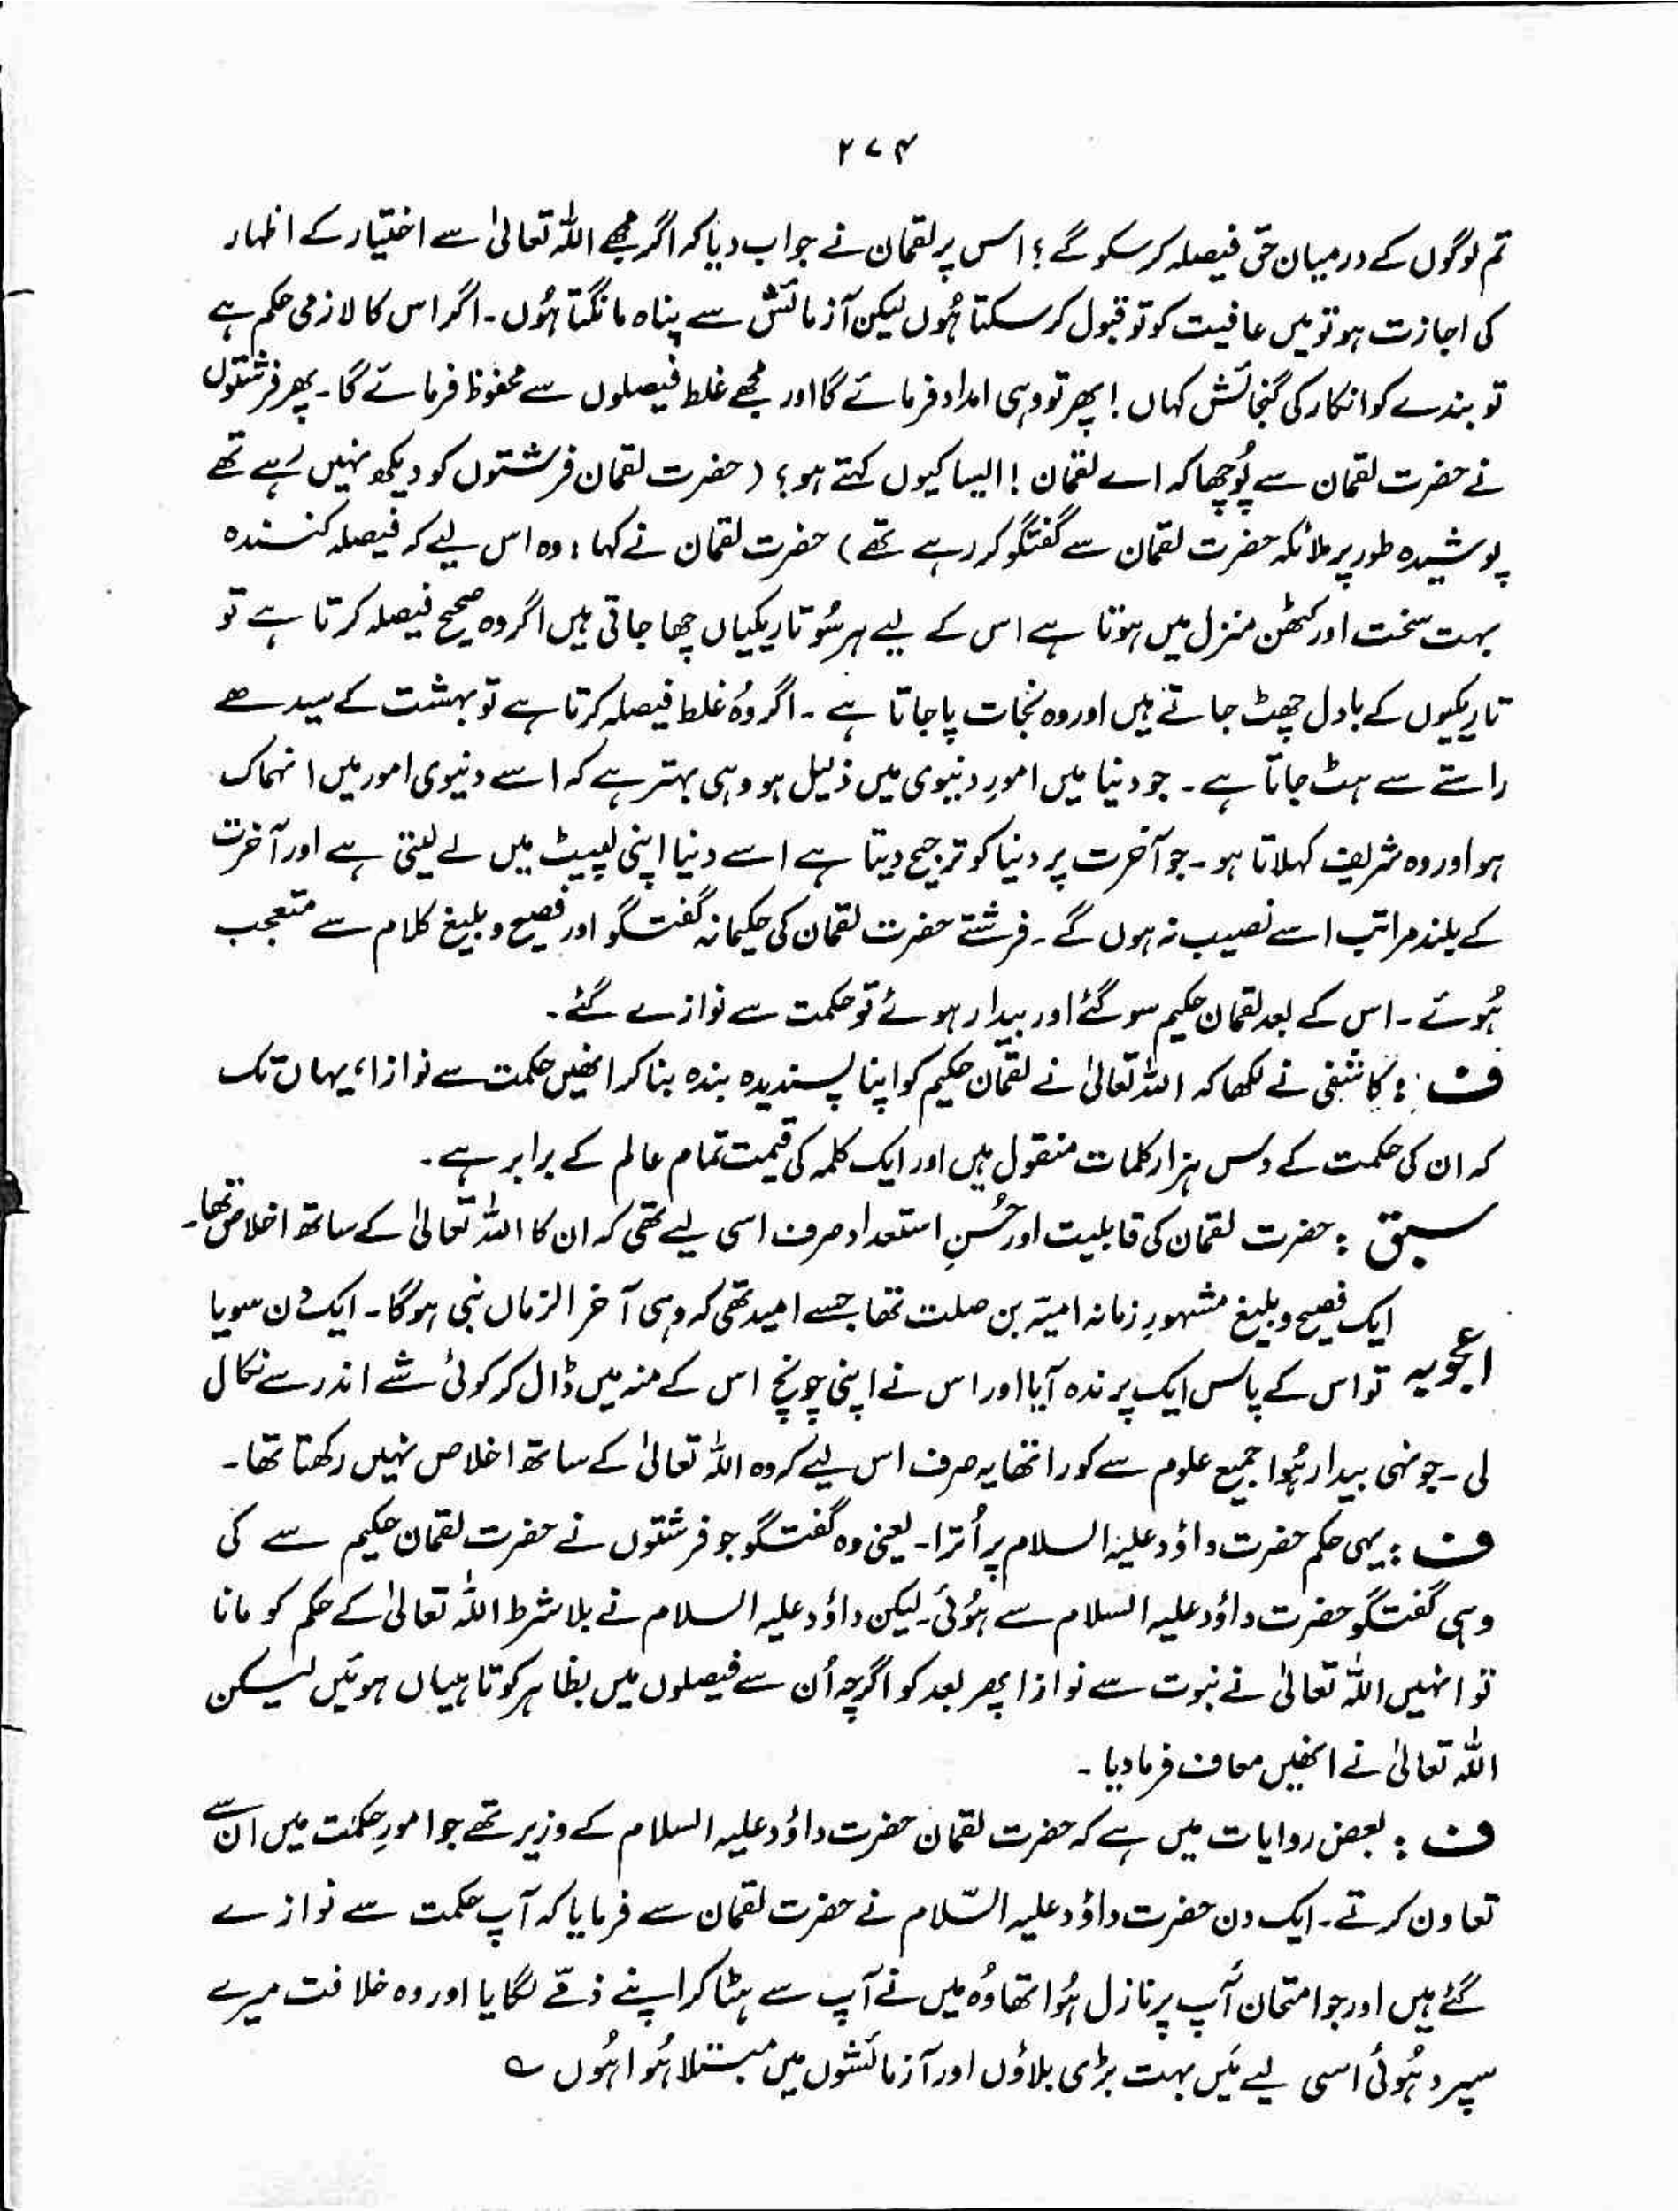 ۲۷۴
تم لوگوں کے درمیان حق فیصلہ کر سکو گے؟ اس پر لقمان نے جواب دیا کہ اگر مجھے اللہ تعالیٰ سے اختیار کے اظہار
کی اجازت ہو تو میں عافیت کو تو قبول کر سکتا ہُوں لیکن آزمائش سے پناہ مانگتا ہُوں۔ اگر اس کا لازمی حکم ہے
تو بندے کو انکار کی گنجائش کہاں! پھر تو وہی امداد فرمائے گا اور مجھے غلط فیصلوں سے محفوظ فرمائے گا۔ پھر فرشتوں
نے حضرت لقمان سے پُوچھا کہ اے لقمان! ایسا کیوں کہتے ہو؟ (حضرت لقمان فرشتوں کو دیکھ نہیں رہے تھے
پوشیدہ طور پر ملائکہ حضرت لقمان سے گفتگو کر رہے تھے) حضرت لقمان نے کہا: وہ اس لیے کہ فیصلہ کنندہ
بہت سخت اور کٹھن منزل میں ہوتا ہے اس کے لیے ہر سُو تاریکیاں چھا جاتی ہیں اگر وہ صحیح فیصلہ کرتا ہے تو
تاریکیوں کے بادل چھٹ جاتے ہیں اور وہ نجات پا جاتا ہے۔ اگر وُہ غلط فیصلہ کرتا ہے تو بہشت کے سیدھے
راستے سے ہٹ جاتا ہے۔ جو دنیا میں امورِ دنیوی میں ذلیل ہو وہی بہتر ہے کہ اسے دنیوی امور میں انہماک
ہو اور وہ شریف کہلاتا ہو۔ جو آخرت پر دنیا کو ترجیح دیتا ہے اسے دنیا اپنی لپیٹ میں لے لیتی ہے اور آخرت
کے بلند مراتب اسے نصیب نہ ہوں گے۔ فرشتے حضرت لقمان کی حکیمانہ گفتگو اور فصیح و بلیغ کلام سے متعجب
ہُوئے۔ اس کے بعد لقمان حکیم سو گئے اور بیدار ہوئے تو حکمت سے نوازے گئے۔
ف: کاشفی نے لکھا کہ اللہ تعالیٰ نے لقمان حکیم کو اپنا پسندیدہ بندہ بنا کر انھیں حکمت سے نوازا، یہاں تک
کہ ان کی حکمت کے دس ہزار کلمات منقول ہیں اور ایک کلمہ کی قیمت تمام عالم کے برابر ہے۔
سبق: حضرت لقمان کی قابلیت اور حُسنِ استعداد صرف اسی لیے تھی کہ ان کا اللہ تعالیٰ کے ساتھ اخلاص تھا۔
ایک فصیح و بلیغ مشہورِ زمانہ امیّہ بن صلت تھا جسے امید تھی کہ وہی آخر الزماں نبی ہوگا۔ ایک دن سویا
اعجوبہ تو اس کے پاس ایک پرندہ آیا اور اس نے اپنی چونچ اس کے منہ میں ڈال کر کوئی شے اندر سے نکال
لی۔ جونہی بیدار ہُوا جمیع علوم سے کورا تھا یہ صرف اس لیے کہ وہ اللہ تعالیٰ کے ساتھ اخلاص نہیں رکھتا تھا۔
ف: یہی حکم حضرت داؤد علیہ السلام پر اُترا۔ یعنی وہ گفتگو جو فرشتوں نے حضرت لقمان حکیم سے کی
وہی گفتگو حضرت داؤد علیہ السلام سے ہُوئی۔ لیکن داؤد علیہ السلام نے بلا شرط اللہ تعالیٰ کے حکم کو مانا
تو انہیں اللہ تعالیٰ نے نبوت سے نوازا پھر بعد کو اگرچہ اُن سے فیصلوں میں بظاہر کوتاہیاں ہوئیں لیکن
اللہ تعالیٰ نے انھیں معاف فرما دیا۔
ف: بعض روایات میں ہے کہ حضرت لقمان حضرت داؤد علیہ السلام کے وزیر تھے جو امورِ حکمت میں ان سے
تعاون کرتے۔ ایک دن حضرت داؤد علیہ السّلام نے حضرت لقمان سے فرمایا کہ آپ حکمت سے نوازے
گئے ہیں اور جو امتحان آپ پر نازل ہُوا تھا وُہ میں نے آپ سے ہٹا کر اپنے ذمّے لگایا اور وہ خلافت میرے
سپرد ہُوئی اسی لیے مَیں بہت بڑی بلاؤں اور آزمائشوں میں مبتلا ہُوا ہُوں ؎